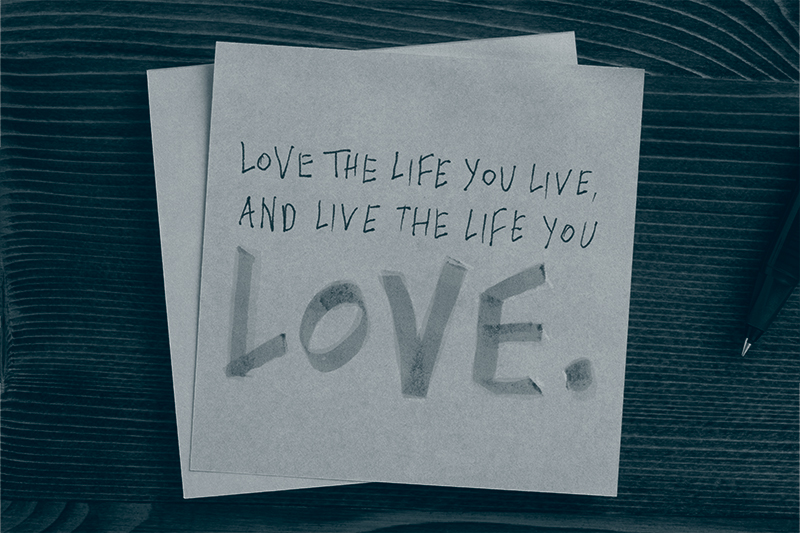 LOVE THE LIFE YOU LIVE,
AND LIVE THE LIFE YOU
LOVE.